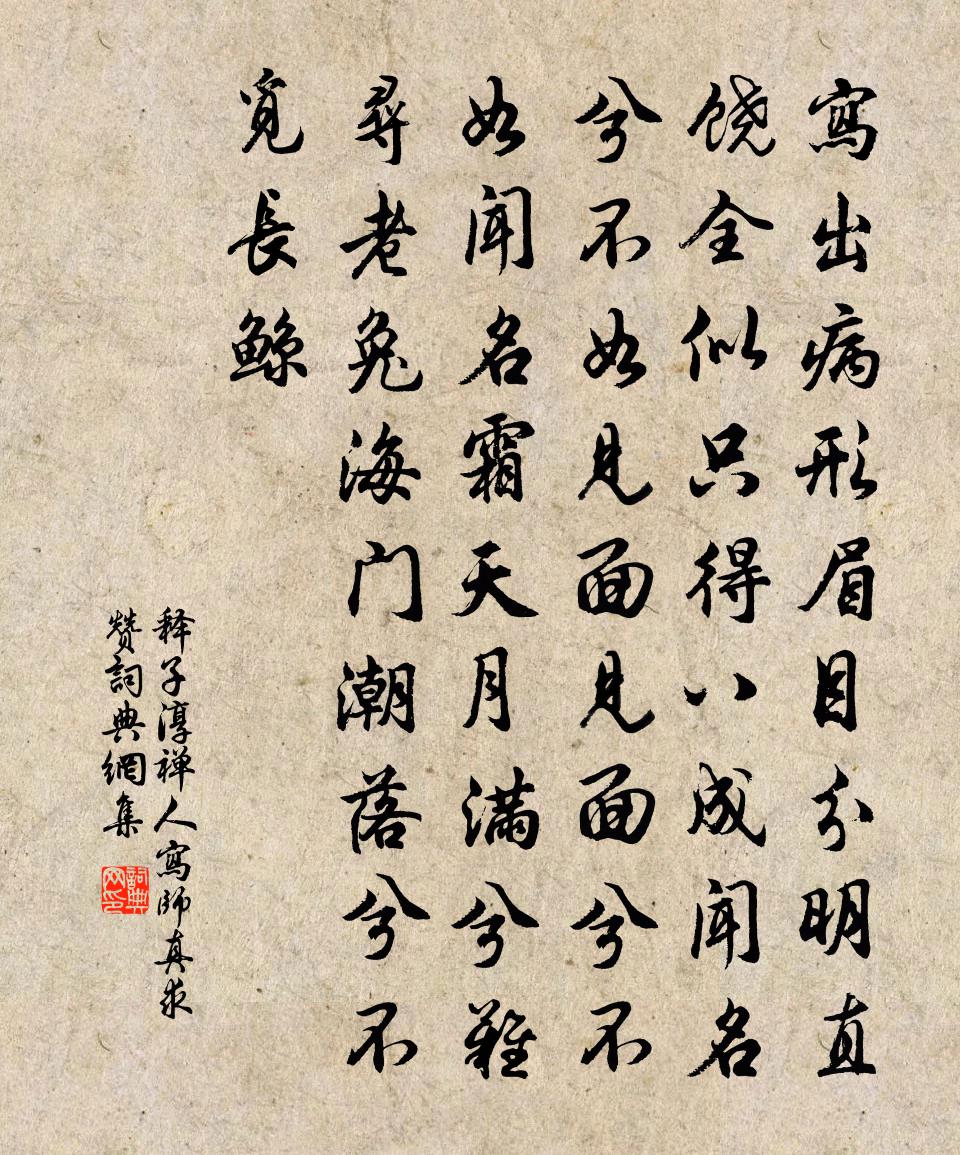 寫出病形眉目分明直
饶全似只得八成闻名
兮不如见面见面兮不
如闻名霜天月满兮難
尋老兔海门潮落兮不
覓長鲸
释子淳禅人寫師真求
赞詞典網集
詞典网印